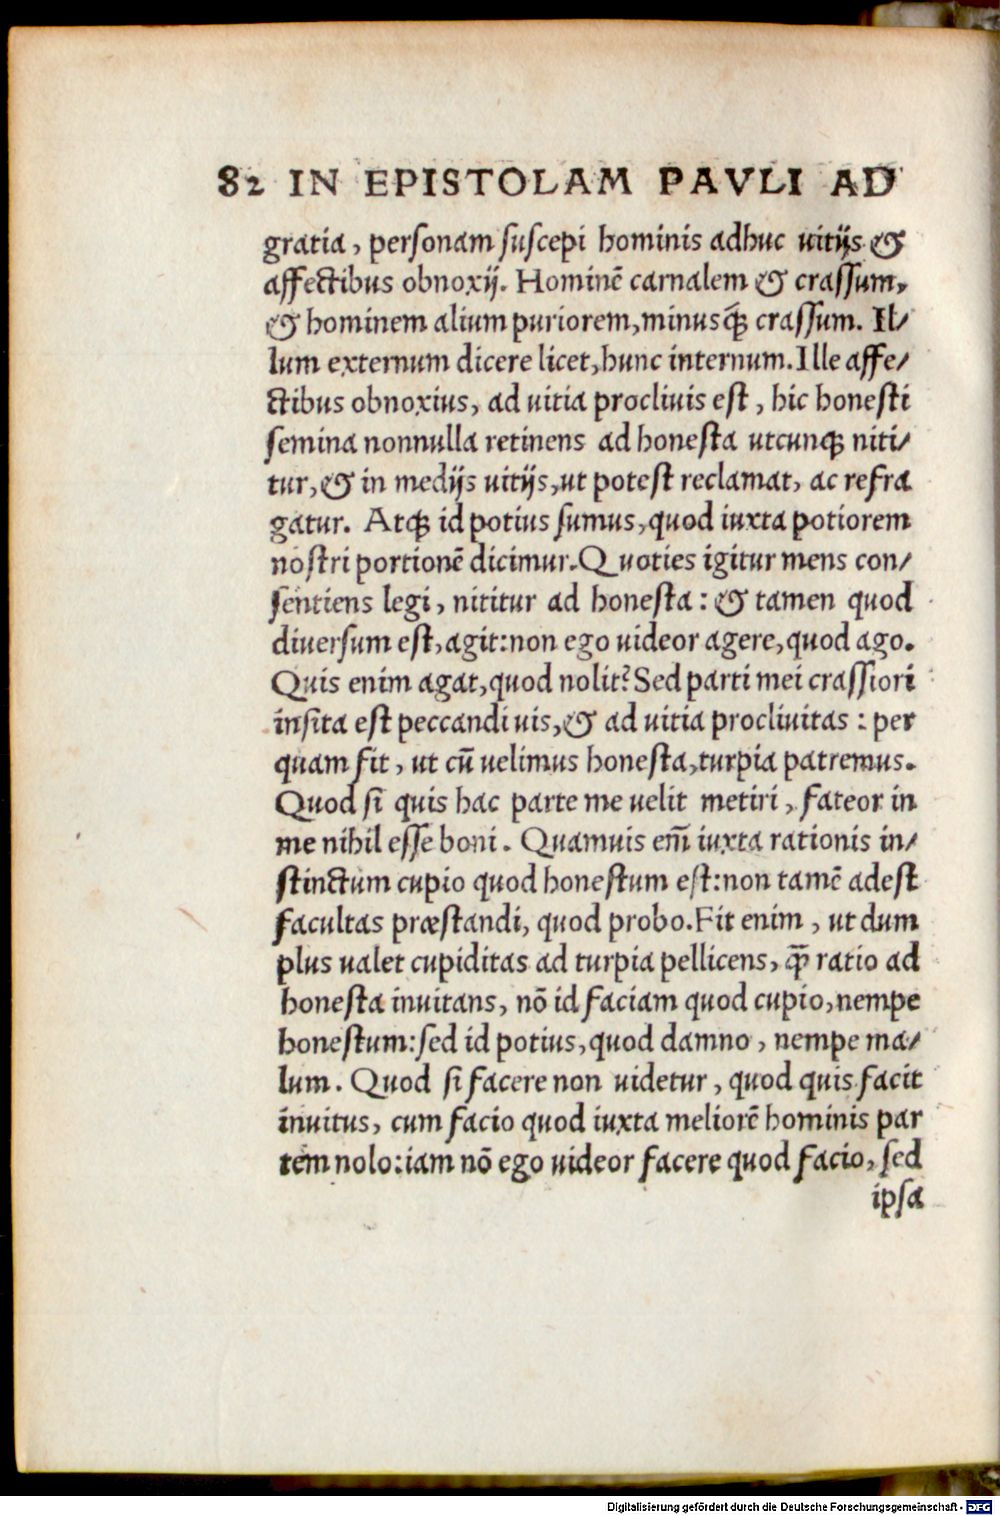 82 IN EPISTOLAM PAVLI AD
gratia, personam suscepi hominis adhuc uitijs &
affectibus obnoxij. Hominē carnalem & crassum,
& hominem alium puriorem, minusq̃ crassum. Il/
lum externum dicere licet, hunc internum. Ille affe/
ctibus obnoxius, ad uitia procliuis est, hic honesti
semina nonnulla retinens ad honesta utcunqꝫ niti/
tur, & in medijs uitijs, ut potest reclamat, ac refra
gatur. Atqꝫ id potius sumus, quod iuxta potiorem
nostri portionē dicimur. Quoties igitur mens con/
sentiens legi, nititur ad honesta: & tamen quod
diuersum est, agit: non ego uideor agere, quod ago.
Quis enim agat, quod nolit? Sed parti mei crassiori
insita est peccandi uis, & ad uitia procliuitas: per
quam fit, ut cū uelimus honesta, turpia patremus.
Quod si quis hac parte me uelit metiri, fateor in
me nihil esse boni. Quamuis em̄ iuxta rationis in/
stinctum cupio quod honestum est: non tamē adest
facultas præstandi, quod probo. Fit enim, ut dum
plus ualet cupiditas ad turpia pellicens, q̃ ratio ad
honesta inuitans, nō id faciam quod cupio, nempe
honestum: sed id potius, quod damno, nempe ma/
lum. Quod si facere non uidetur, quod quis facit
inuitus, cum facio quod iuxta meliorē hominis par
tem nolo: iam nō ego uideor facere quod facio, sed
ipsa
Digitalisierung gefördert durch die Deutsche Forschungsgemeinschaft - DFG